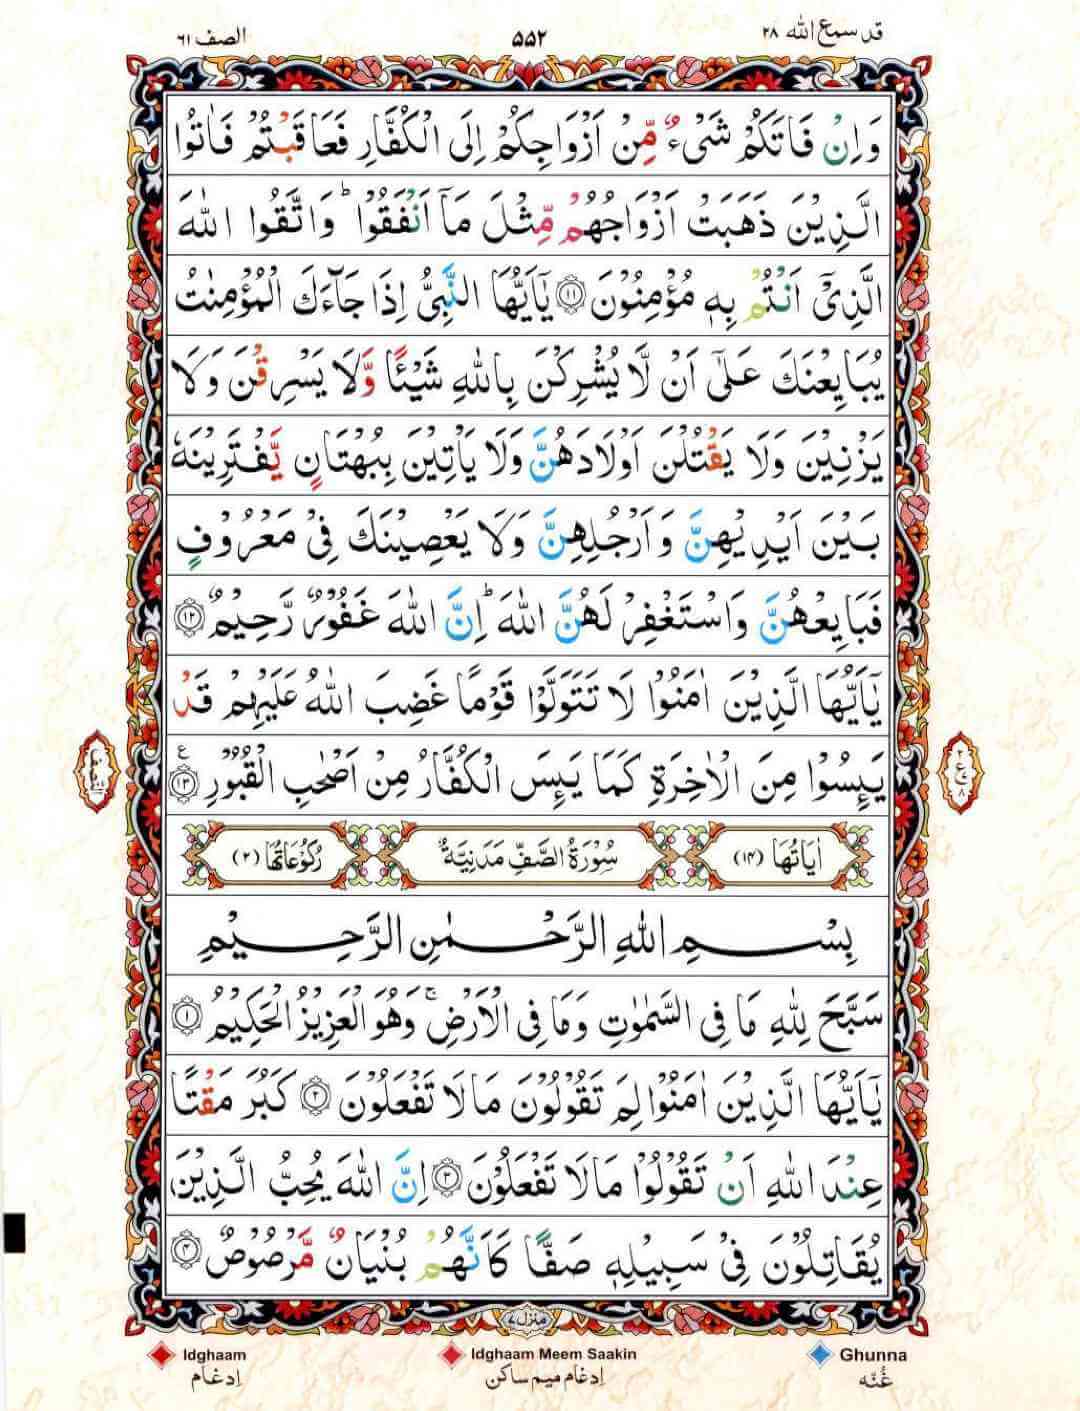 قد سمع الله ۲۸
۵۵۲
الصف ۶۱
وَاِنْ فَاتَكُمْ شَیْءٌ مِّنْ اَزْوَاجِكُمْ اِلَى الْكُفَّارِ فَعَاقَبْتُمْ فَاٰتُوا
الَّذِیْنَ ذَهَبَتْ اَزْوَاجُهُمْ مِّثْلَ مَاۤ اَنْفَقُوْا ؕ وَاتَّقُوا اللّٰهَ
الَّذِیْۤ اَنْتُمْ بِهٖ مُؤْمِنُوْنَ ﴿۱۱﴾ یٰۤاَیُّهَا النَّبِیُّ اِذَا جَآءَكَ الْمُؤْمِنٰتُ
یُبَایِعْنَكَ عَلٰۤى اَنْ لَّا یُشْرِكْنَ بِاللّٰهِ شَیْئًا وَّلَا یَسْرِقْنَ وَلَا
یَزْنِیْنَ وَلَا یَقْتُلْنَ اَوْلَادَهُنَّ وَلَا یَاْتِیْنَ بِبُهْتَانٍ یَّفْتَرِیْنَهٗ
بَیْنَ اَیْدِیْهِنَّ وَاَرْجُلِهِنَّ وَلَا یَعْصِیْنَكَ فِیْ مَعْرُوْفٍ
فَبَایِعْهُنَّ وَاسْتَغْفِرْ لَهُنَّ اللّٰهَ ؕ اِنَّ اللّٰهَ غَفُوْرٌ رَّحِیْمٌ ﴿۱۲﴾
یٰۤاَیُّهَا الَّذِیْنَ اٰمَنُوْا لَا تَتَوَلَّوْا قَوْمًا غَضِبَ اللّٰهُ عَلَیْهِمْ قَدْ
یَىِٕسُوْا مِنَ الْاٰخِرَةِ كَمَا یَىِٕسَ الْكُفَّارُ مِنْ اَصْحٰبِ الْقُبُوْرِ ﴿۱۳﴾ ع
اٰیَاتُهَا (۱۴)
سُوْرَةُ الصَّفِّ مَدَنِیَّةٌ
رُكُوْعَاتُهَا (۲)
بِسْمِ اللّٰهِ الرَّحْمٰنِ الرَّحِیْمِ
سَبَّحَ لِلّٰهِ مَا فِی السَّمٰوٰتِ وَمَا فِی الْاَرْضِ ۚ وَهُوَ الْعَزِیْزُ الْحَكِیْمُ ﴿۱﴾
یٰۤاَیُّهَا الَّذِیْنَ اٰمَنُوْا لِمَ تَقُوْلُوْنَ مَا لَا تَفْعَلُوْنَ ﴿۲﴾ كَبُرَ مَقْتًا
عِنْدَ اللّٰهِ اَنْ تَقُوْلُوْا مَا لَا تَفْعَلُوْنَ ﴿۳﴾ اِنَّ اللّٰهَ یُحِبُّ الَّذِیْنَ
یُقَاتِلُوْنَ فِیْ سَبِیْلِهٖ صَفًّا كَاَنَّهُمْ بُنْیَانٌ مَّرْصُوْصٌ ﴿۴﴾
منزل ۷
Idghaam
Idghaam Meem Saakin
Ghunna
اِدغام
اِدغام میم ساکن
غُنّہ